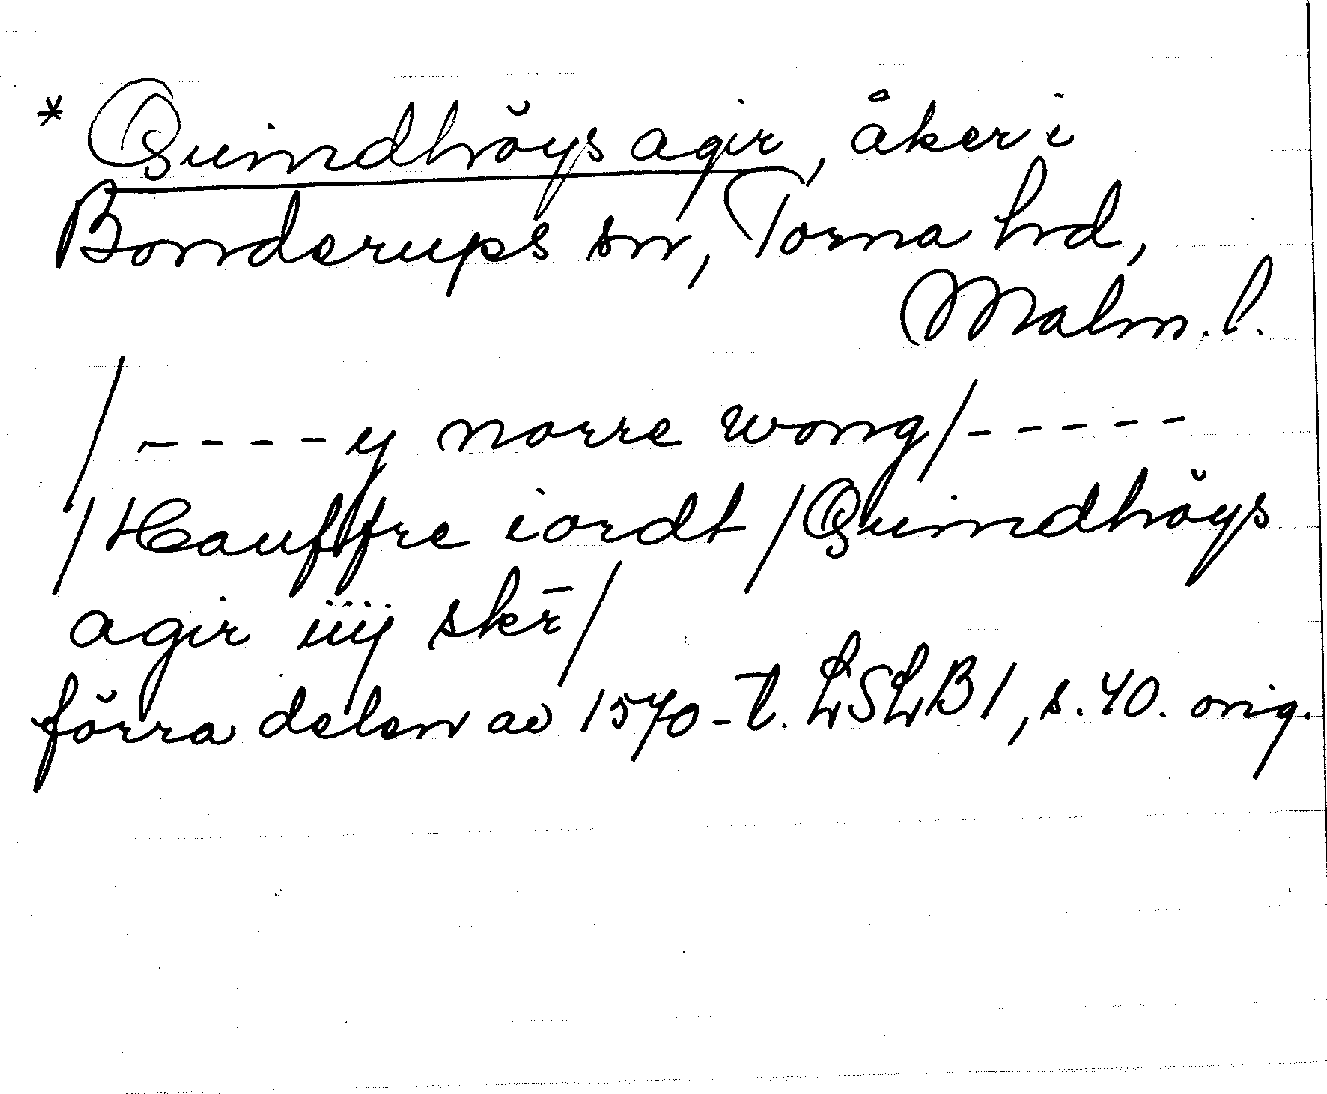 * Quindhöys agir, åker i
Bonderups sn, Torna hd,
Malm. l.
/----y norre wong/-----
/Hauffre iordt/Quindhöys
agir iiij skr̄/
förra delen av 1570-t. LSLB1, s. 40. orig.